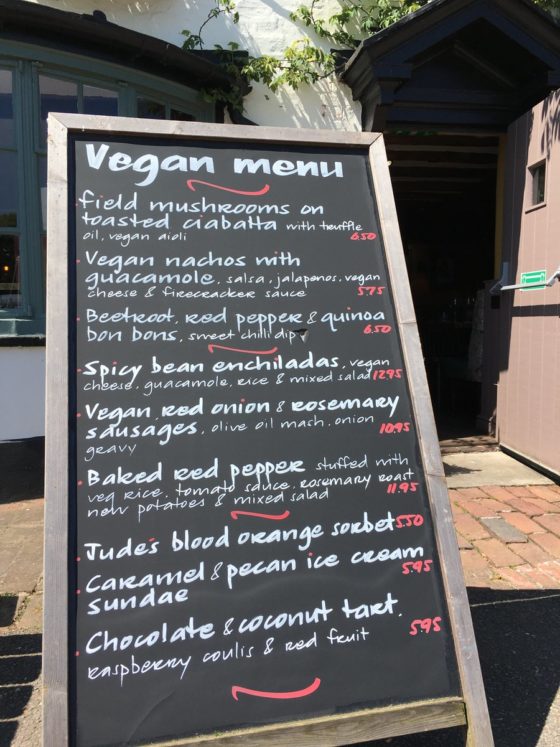 Vegan menu
field mushrooms on
toasted ciabatta with truffle
oil, vegan aioli 6.50
Vegan nachos with
guacamole, salsa, jalapenos, vegan
cheese & firecracker sauce 5.75
Beetroot, red pepper & quinoa
bon bons, sweet chilli dip 6.50
Spicy bean enchiladas, vegan
cheese, guacamole, rice & mixed salad 12.95
Vegan red onion & rosemary
sausages, olive oil mash, onion
gravy 10.95
Baked red pepper stuffed with
veg rice, tomato sauce, rosemary roast
new potatoes & mixed salad 11.95
Jude's blood orange sorbet 5.50
Caramel & pecan ice cream
sundae 5.95
Chocolate & coconut tart,
raspberry coulis & red fruit 5.95